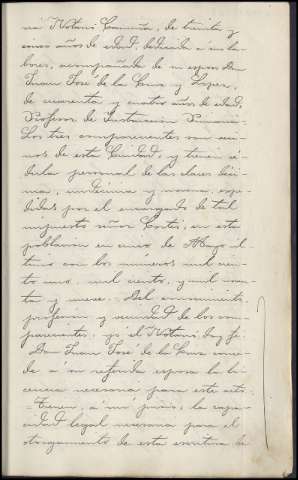 ra Notari Caraveña, de treinta y
cinco años de edad, dedicada a su la-
bores, acompañada de su esposo Don
Juan José de la Cruz y Lopez,
de cuarenta y cuatro años de edad,
Profesor de Instruccion Primaria.
Los tres comparecientes son veci-
nos de esta Ciudad, y tienen cé-
dula personal de las clases déci-
ma, undécima y novena, espe-
didas por el encargado de tal
impuesto señor Cortes, en esta
poblacion en cinco de Mayo úl-
timo con los números mil cien-
to uno, mil ciento, y mil no-
ta y nueve. Del conocimiento,
profesion y vecindad de los com-
parecientes, yo el Notario doy fé.
Don Juan José de la Cruz conce-
de a su referida esposa la li-
cencia necesaria para este acto.
= Tienen, a mi juicio, la capa-
cidad legal necesaria para el
otorgamiento de esta escritura de